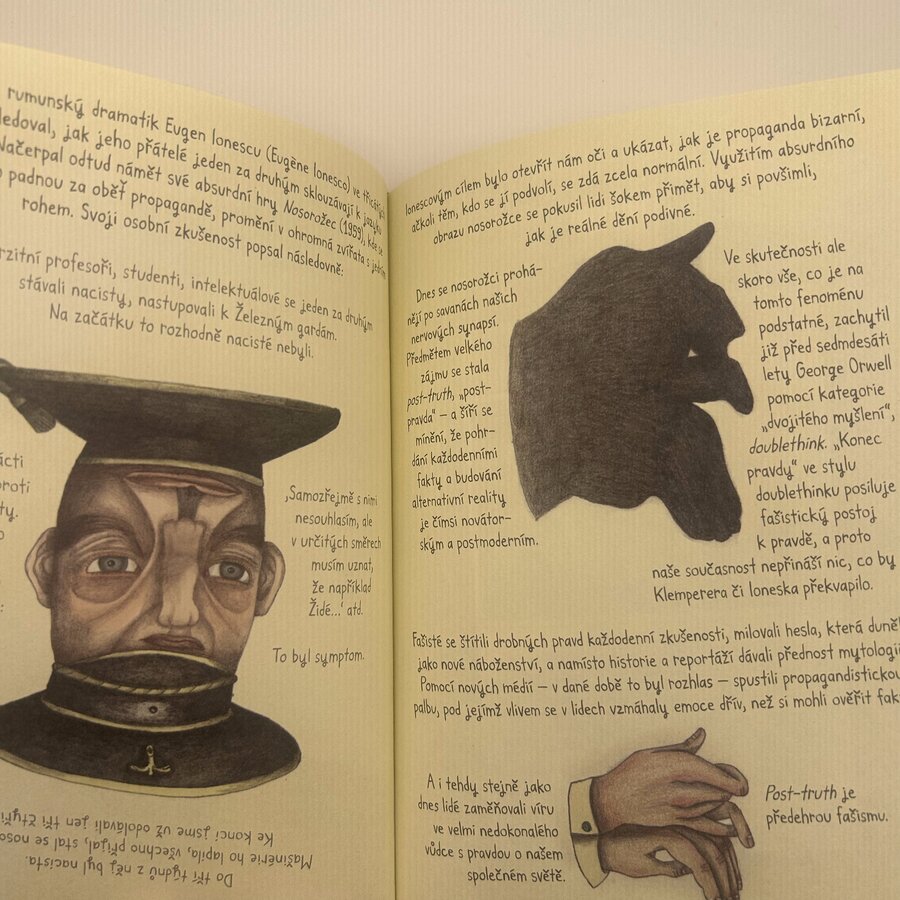 rumunský dramatik Eugen Ionescu (Eugène Ionesco) ve třicátých
jak jeho přátelé jeden za druhým sklouzávají k jazyku
Načerpal odtud námět své absurdní hry Nosorožec (1959), kde se
padnou za oběť propagandě, promění v ohromná zvířata s jedním
rohem. Svoji osobní zkušenost popsal následovně:
profesoři, studenti, intelektuálové se jeden za druhým
stávali nacisty, nastupovali k Železným gardám.
Na začátku to rozhodně nacisté nebyli.
‚Samozřejmě s nimi
nesouhlasím, ale
v určitých směrech
musím uznat,
že například
Židé...‘ atd.
To byl symptom.
Ke konci jsme už odolávali jen tři čtyři
Mašinérie ho lapila, všechno přijal, stal se
Do tří týdnů z něj byl nacista.
Ionescovým cílem bylo otevřít nám oči a ukázat, jak je propaganda bizarní,
ačkoli těm, kdo se jí podvolí, se zdá zcela normální. Využitím absurdního
obrazu nosorožce se pokusil lidi šokem přimět, aby si povšimli,
jak je reálné dění podivné.
Dnes se nosorožci prohá-
nějí po savanách našich
nervových synapsí.
Předmětem velkého
zájmu se stala
post-truth, „post-
pravda“ – a šíří se
mínění, že pohr-
dání každodenními
fakty a budování
alternativní reality
je čímsi novátor-
ským a postmoderním.
Ve skutečnosti ale
skoro vše, co je na
tomto fenoménu
podstatné, zachytil
již před sedmdesáti
lety George Orwell
pomocí kategorie
„dvojitého myšlení“,
doublethink. „Konec
pravdy“ ve stylu
doublethinku posiluje
fašistický postoj
k pravdě, a proto
naše současnost nepřináší nic, co by
Klemperera či Ioneska překvapilo.
Fašisté se štítili drobných pravd každodenní zkušenosti, milovali hesla, která duněla
jako nové náboženství, a namísto historie a reportáží dávali přednost mytologii
Pomocí nových médií – v dané době to byl rozhlas – spustili propagandistickou
palbu, pod jejímž vlivem se v lidech vzmáhaly emoce dřív, než si mohli ověřit
A i tehdy stejně jako
dnes lidé zaměňovali víru
ve velmi nedokonalého
vůdce s pravdou o našem
společném světě.
Post-truth je
předehrou fašismu.